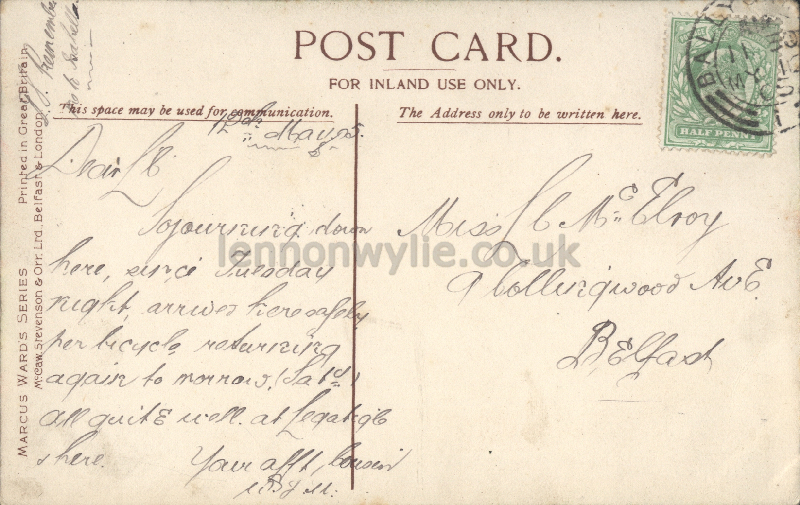 POST CARD.
FOR INLAND USE ONLY.
This space may be used for communication.
The Address only to be written here.
MARCUS WARD'S SERIES Printed in Great Britain
McCaw, Stevenson & Orr, Ltd., Belfast & London.
HALF PENNY
Remember
to Isabella
12th May 05.
Dear LC.
Sojourning down
here, since Tuesday
night, arrived here safely
per bicycle, returning
again to morrow, (Satd)
all quite well. at
& here. Your afft, cousin
Miss LC McElroy
9 Collingwood Ave
Belfast
lennonwylie.co.uk